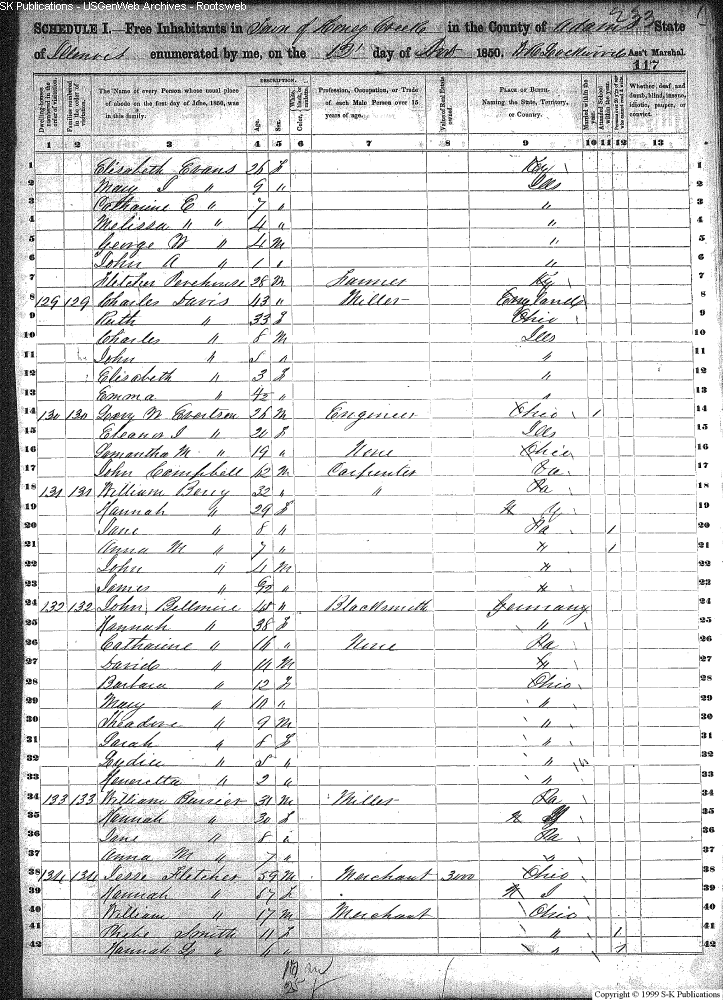 SK Publications - USGenWeb Archives - Rootsweb
SCHEDULE I.—Free Inhabitants in Town of Honey Creek in the County of Adams State
of Illinois enumerated by me, on the 13th day of Nov 1850. Ass't Marshal.
117
DESCRIPTION.
Dwelling-houses numbered in the order of visitation.
Families numbered in the order of visitation.
The Name of every Person whose usual place of abode on the first day of June, 1850, was in this family.
Age.
Sex.
Color,
Profession, Occupation, or Trade of each Male Person over 15 years of age.
Value of Real Estate owned.
PLACE OF BIRTH. Naming the State, Territory, or Country.
Married within the year.
Attended School within the year.
Whether deaf and dumb, blind, insane, idiotic, pauper, or convict.
1 2 3 4 5 6 7 8 9 10 11 12 13
1 Elisabeth Evans 26 f Ky 1
2 Mary J " 9 " Ills 2
3 Catharine E " 7 " " 3
4 Melissa " " 4 " " 4
5 George W " 4 m " 5
6 John A " 1 " " 6
7 Fletcher 28 m Farmer Ky 7
8 129 129 Charles Davis 43 " Miller England 8
9 Ruth " 33 f Ohio 9
10 Charles " 8 m Ills 10
11 John " 5 " " 11
12 Elisabeth " 3 f " 12
13 Emma " " " 13
14 130 130 W Evertson 26 m Engineer Ohio 1 14
15 Eleanor J " 20 f Ills 15
16 Samantha M " 19 " None Ohio 16
17 John Campbell 62 m Carpenter Va 17
18 131 131 William Berry 32 " " Pa 18
19 Hannah " 29 f N Y 19
20 Jane " 8 " Pa 1 20
21 Anna M " 7 " " 1 21
22 John " 4 m " 22
23 James " " " 23
24 132 132 John Bellmire 40 " Blacksmith Germany 24
25 Hannah " 38 f " 25
26 Catharine " 16 " None Pa 26
27 David " 14 m " 27
28 Barbara " 12 f Ohio 28
29 Mary " 10 " " 29
30 Theadore " 9 m " 30
31 Sarah " 8 f " 31
32 Lydia " 5 " " 32
33 Heneretta " 2 " " 33
34 133 133 William Burrier 31 m Miller Pa 34
35 Hannah " 30 f N Y 35
36 Jane " 8 " Pa 36
37 Anna M " 7 " " 37
38 134 134 Jesse Fletcher 59 m Merchant 3000 Ohio 38
39 Hannah " 57 f N J 39
40 William " 17 m Merchant Ohio 40
41 Smith 11 f " 1 41
42 Hannah L " 6 " " 1 42
Copyright © 1999 S-K Publications